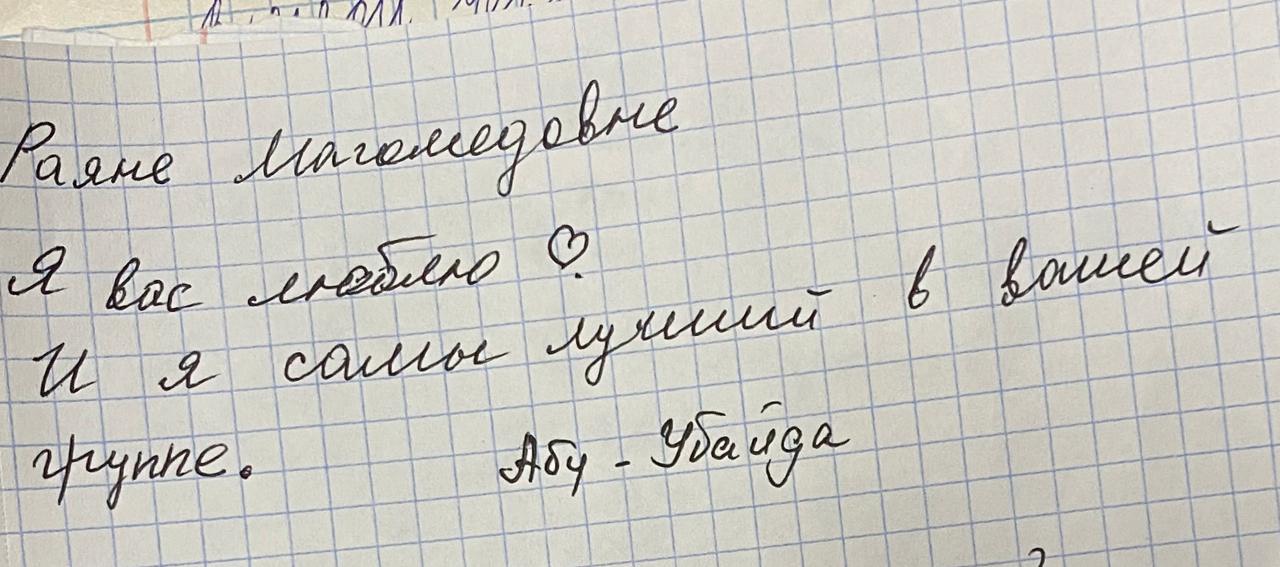 Раяне Магомедовне
Я вас люблю ♡.
И я самы лучший в вашей
группе.
Абу - Убайда